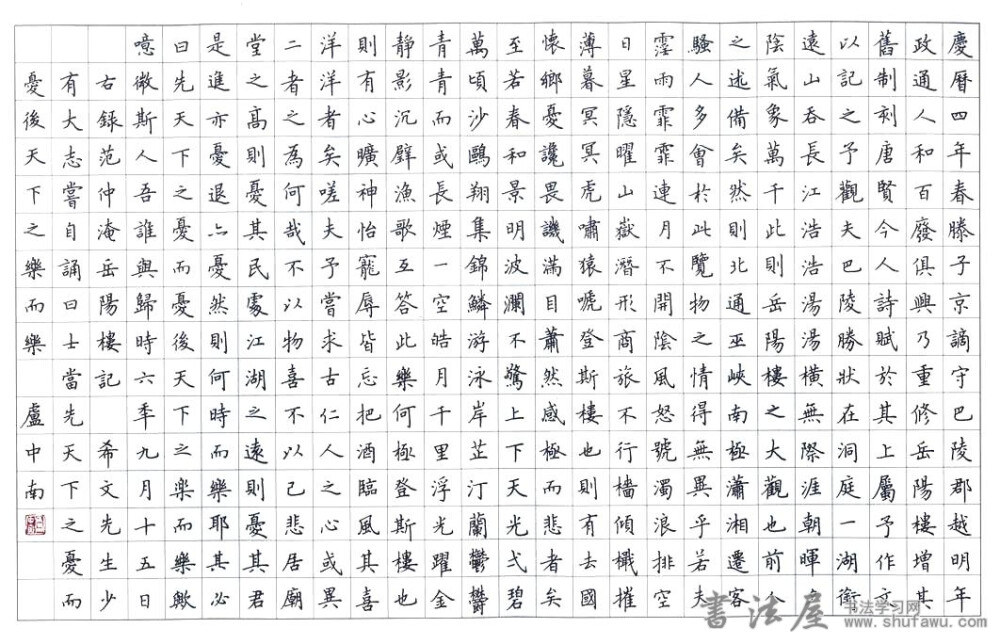 慶曆四年春滕子京謫守巴陵郡越明年
政通人和百廢俱興乃重修岳陽樓增其
舊制刻唐賢今人詩賦於其上屬予作文
以記之予觀夫巴陵勝狀在洞庭一湖銜
遠山吞長江浩浩湯湯橫無際涯朝暉
陰氣象萬千此則岳陽樓之大觀也前人
之述備矣然則北通巫峽南極瀟湘遷客
騷人多會於此覽物之情得無異乎若夫
霪雨霏霏連月不開陰風怒號濁浪排空
日星隱曜山嶽潛形商旅不行檣傾檝摧
薄暮冥冥虎嘯猿嗁登斯樓也則有去國
懷鄉憂讒畏譏滿目蕭然感極而悲者矣
至若春和景明波瀾不驚上下天光弌碧
萬頃沙鷗翔集錦鱗游泳岸芷汀蘭鬱鬱
青青而或長煙一空皓月千里浮光躍金
靜影沉璧漁歌互答此樂何極登斯樓也
則有心曠神怡寵辱皆忘把酒臨風其喜
洋洋者矣嗟夫予嘗求古仁人之心或異
二者之為何哉不以物喜不以己悲居廟
堂之高則憂其民處江湖之遠則憂其君
是進亦憂退亦憂然則何時而樂耶其必
曰先天下之憂而憂後天下之樂而樂歟
噫微斯人吾誰與歸時六秊九月十五日
右錄范仲淹岳陽樓記 希文先生少
有大志嘗自誦曰士當先天下之憂而
憂後天下之樂而樂 盧中南
書法屋
书法学习网
www.shufawu.com